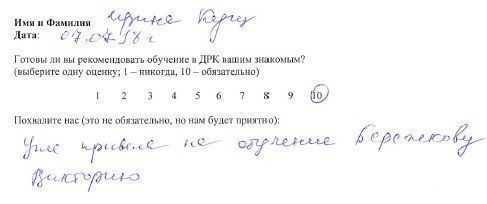 Имя и Фамилия Ирина Керч
Дата: 07.07.18 г
Готовы ли вы рекомендовать обучение в ДРК вашим знакомым?
(выберите одну оценку; 1 – никогда, 10 – обязательно)
1 2 3 4 5 6 7 8 9 10
Похвалите нас (это не обязательно, но нам будет приятно):
Уже привела на обучение Бережкову
Викторию